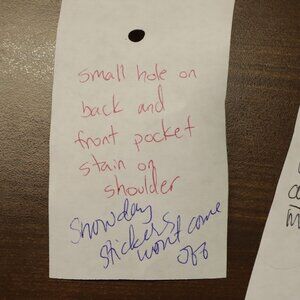 small hole on
back and
front pocket
stain on
shoulder
Snowday
Stickers
wont come
off